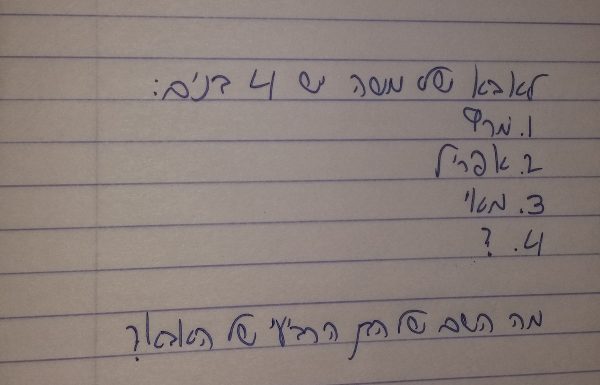 לאבא של משה יש 4 בנים:
1. מרץ
2. אפריל
3. מאי
4. ?
מה השם של הבן הרביעי של האבא?